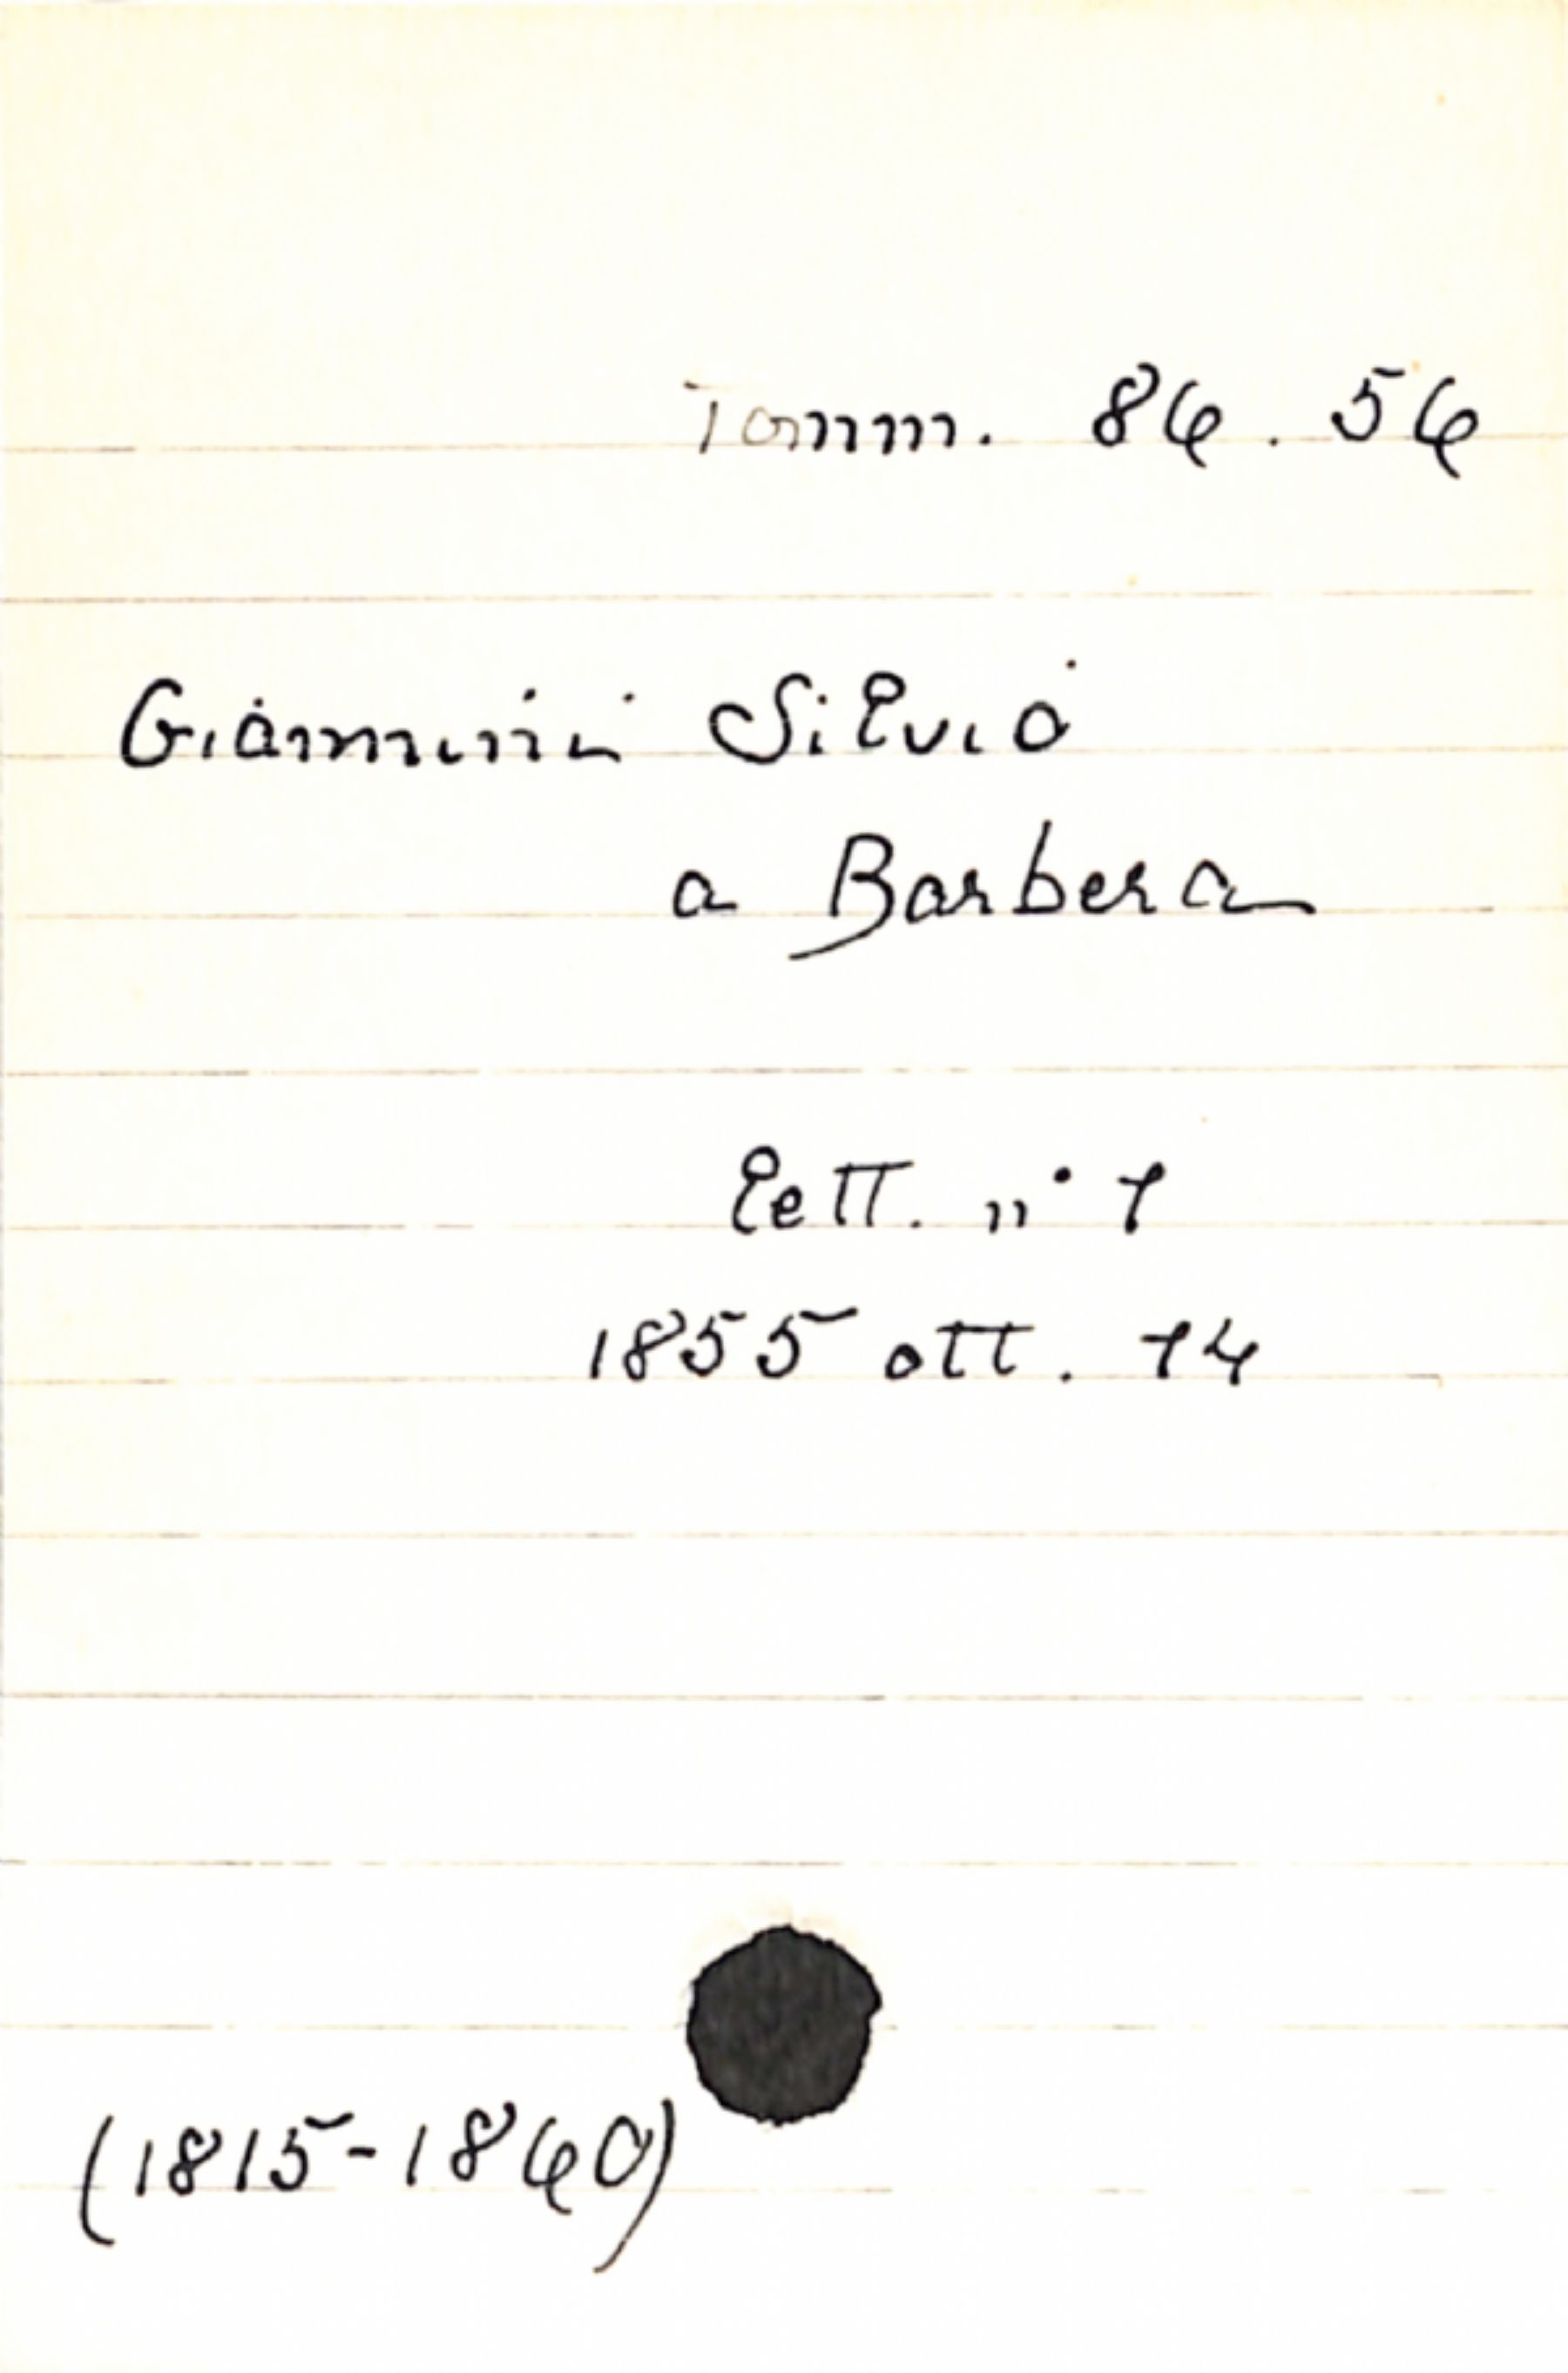 Tomm. 86. 56
Giannini Silvio
a Barbera
lett. n° 1
1855 ott. 14
(1815-1860)